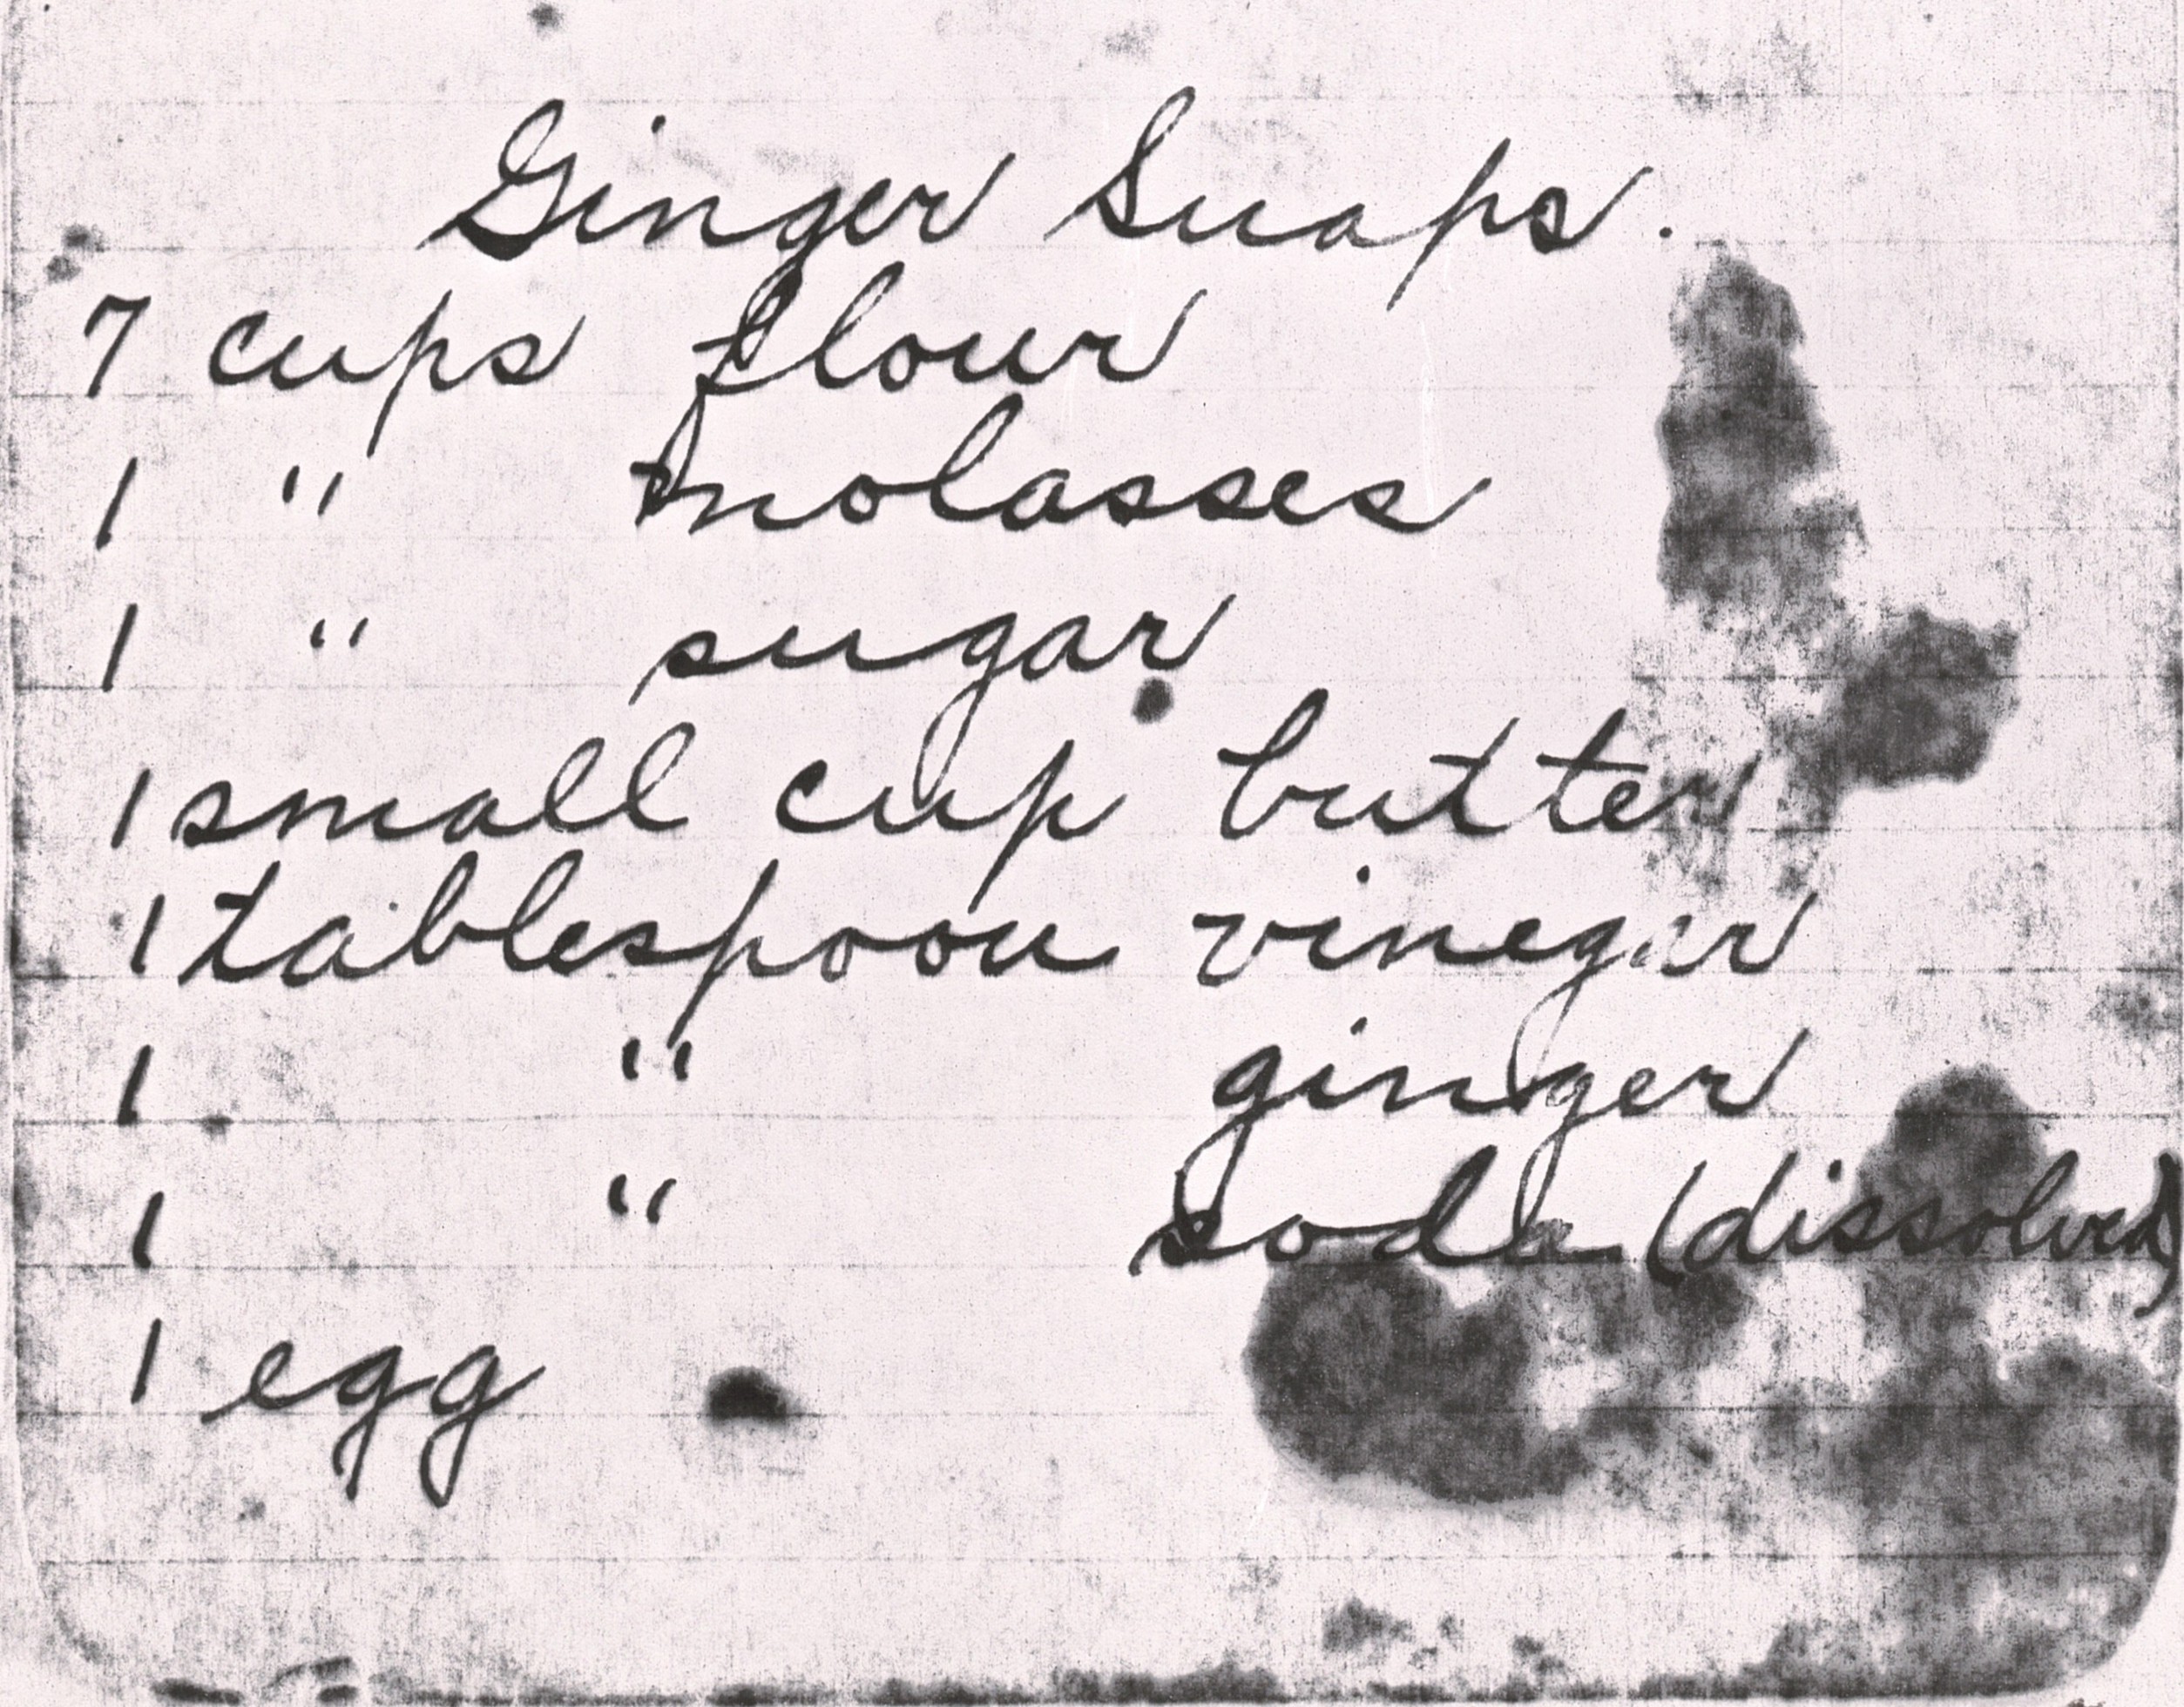 Ginger Snaps.
7 cups flour
1 " molasses
1 " sugar
1 small cup butter
1 tablespoon vinegar
1 " ginger
1 " soda (dissolved)
1 egg